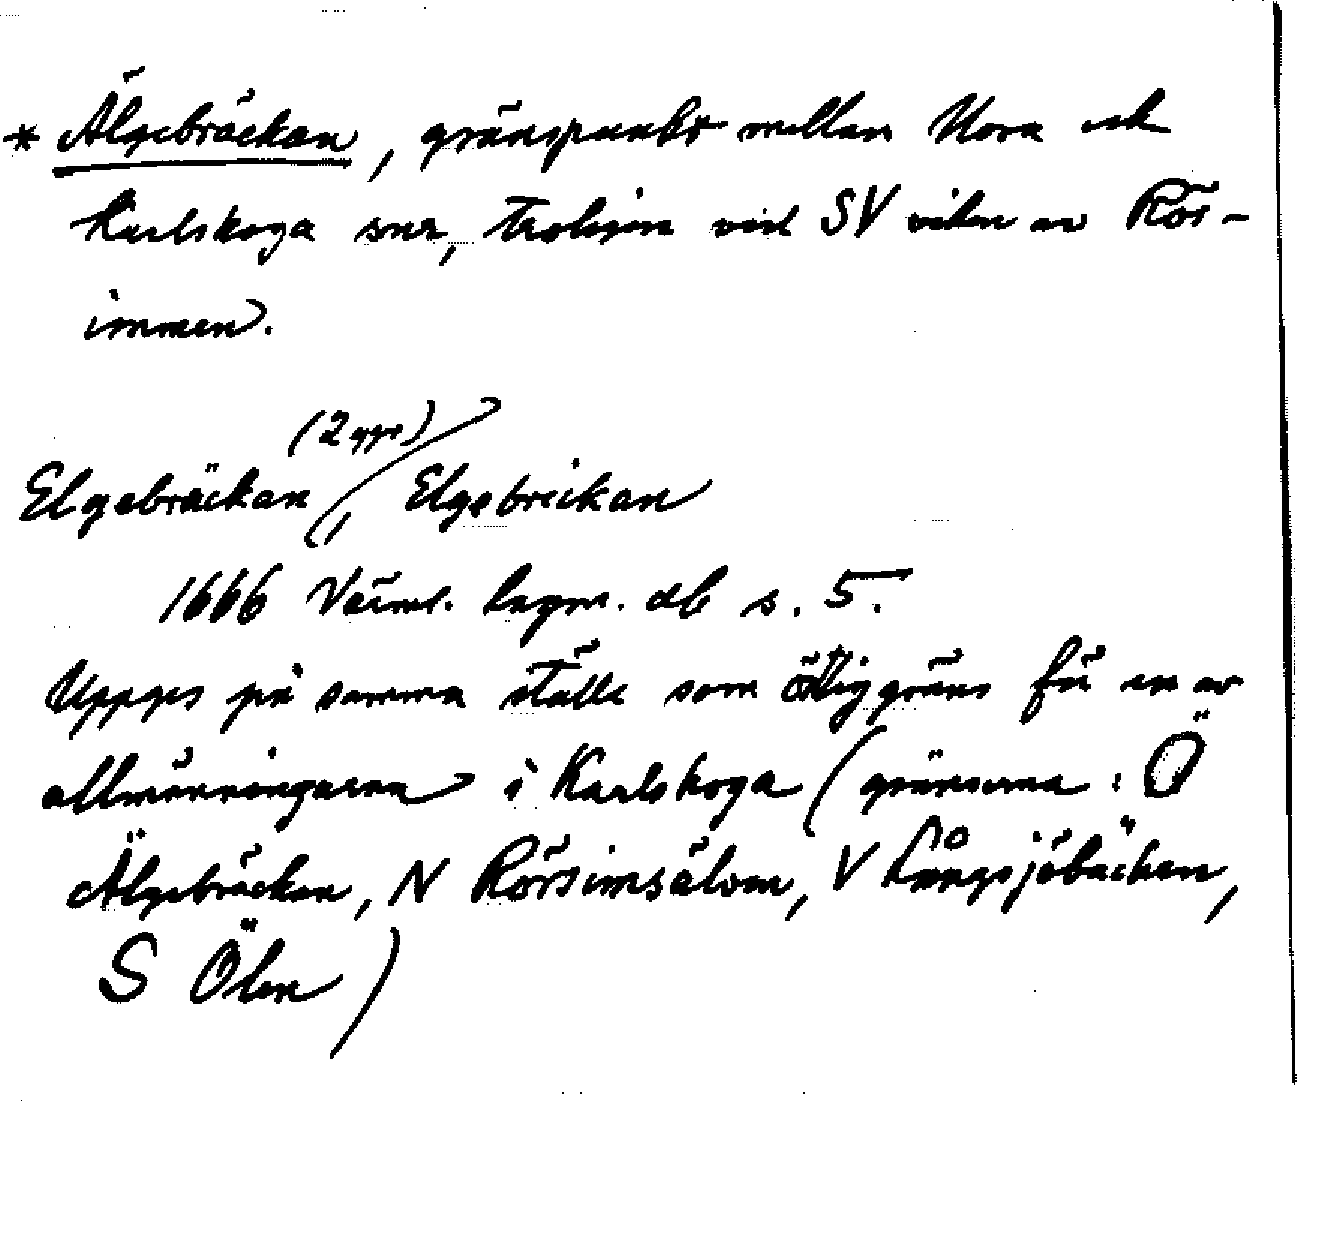 * Älgebräckan, gränspunkt mellan Nora och
Karlskoga snr, troligen vid SV viken av Rös-
immen.
(2 ggr)
Elgebräckan, Elgebreckan
1666 Värml. lagm. db s. 5.
Uppges på samma ställe som östlig gräns för en av
allmänningarna i Karlskoga (gränserna: Ö
Älgebräckan, N Rörsimsälven, V Långsjöbäcken,
S Ölen)